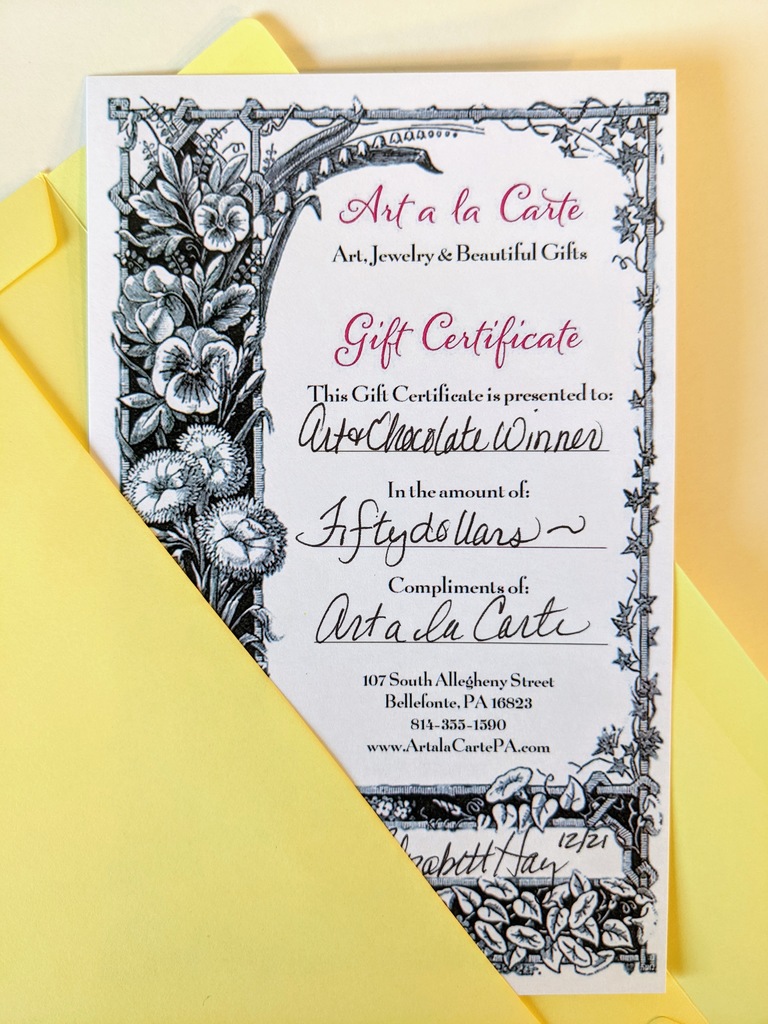 Art a la Carte
Art, Jewelry & Beautiful Gifts
Gift Certificate
This Gift Certificate is presented to:
Art & Chocolate Winner
In the amount of:
Fifty dollars ~
Compliments of:
Art a la Carte
107 South Allegheny Street
Bellefonte, PA 16823
814-355-1590
www.ArtalaCartePA.com
12/21
Hay